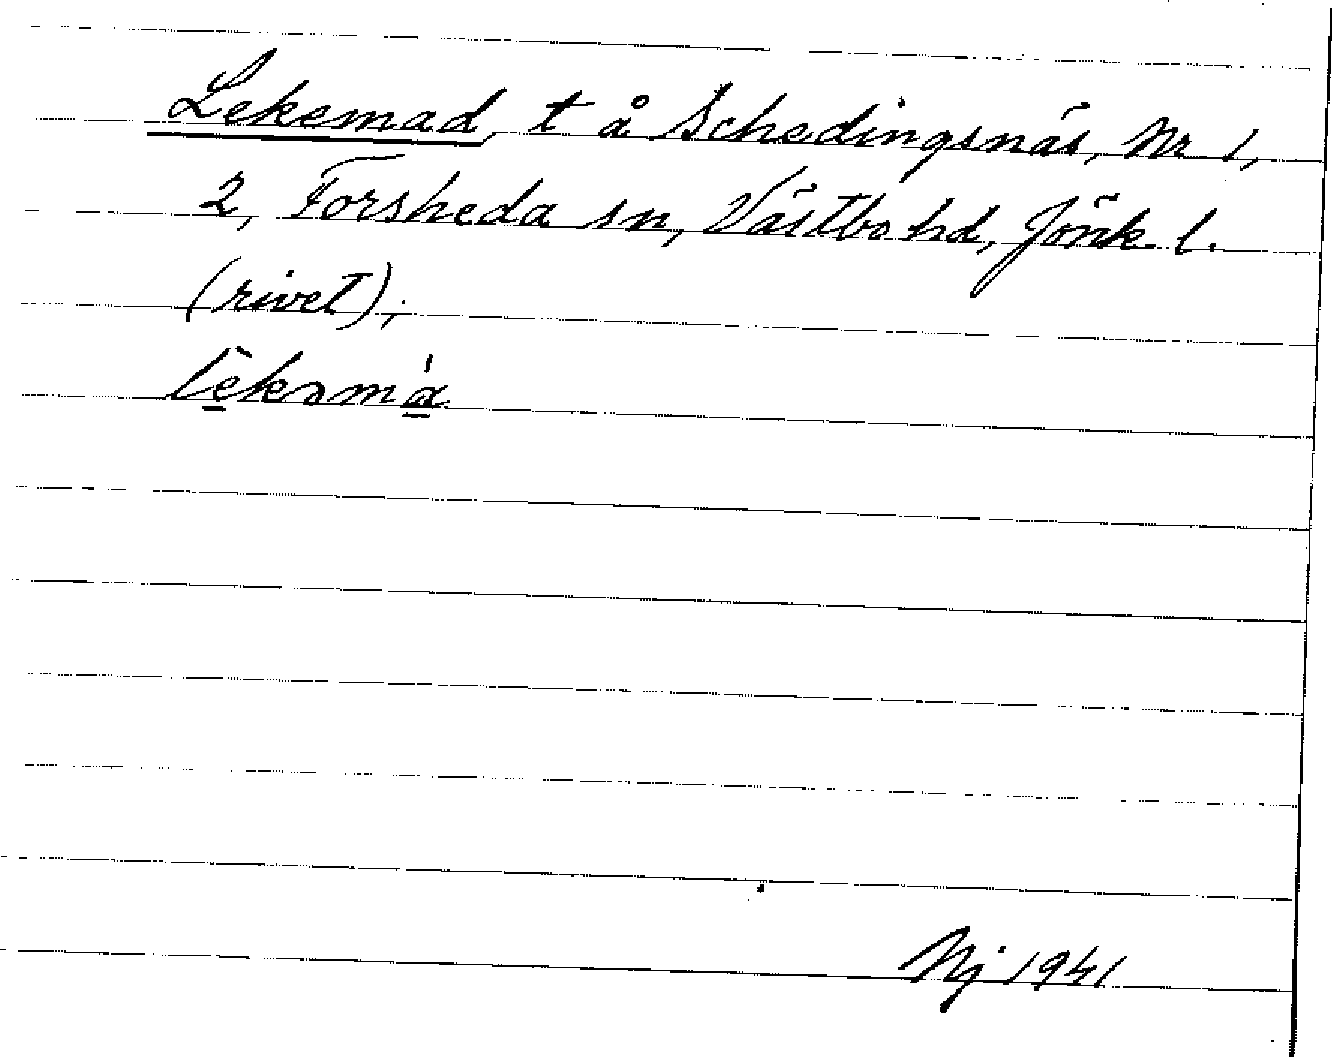 Lekemad, t å Schedingsnäs, Nr 1,
2, Forsheda sn, Västbo hd, Jönk. l.
(rivet);
lèkəmá
Nj 1941